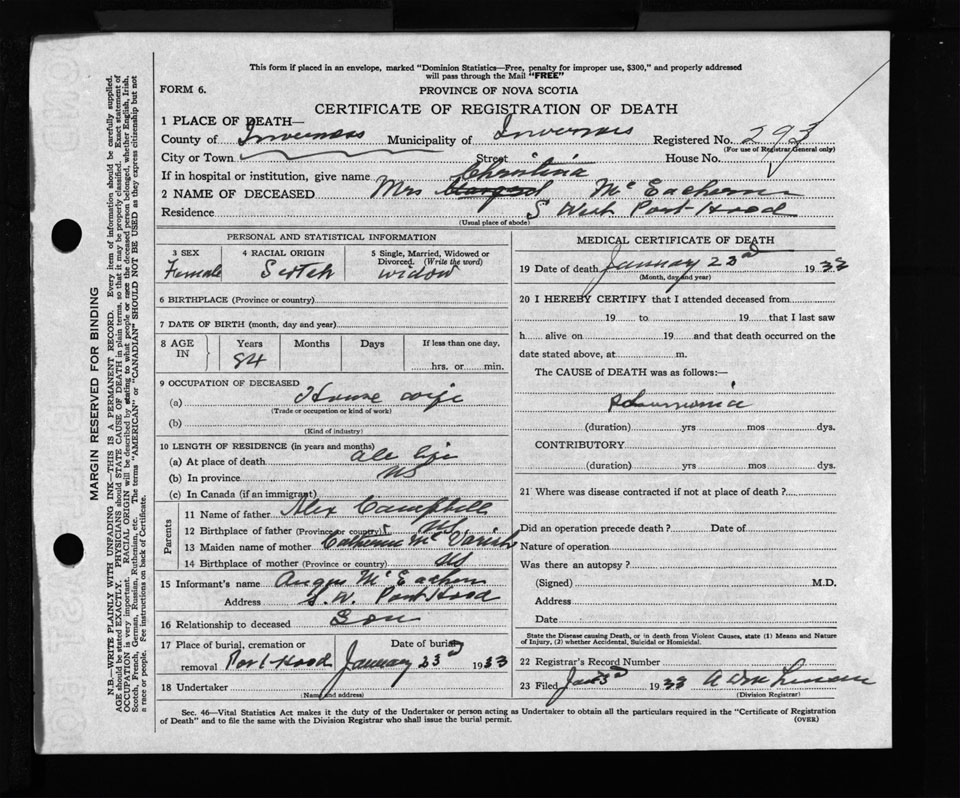 This form if placed in an envelope, marked "Dominion Statistics—Free, penalty for improper use, $300," and properly addressed
will pass through the Mail "FREE"
FORM 6.
PROVINCE OF NOVA SCOTIA
CERTIFICATE OF REGISTRATION OF DEATH
1 PLACE OF DEATH—
County of Inverness Municipality of Inverness Registered No. 293
(For use of Registrar General only)
City or Town Street House No.
If in hospital or institution, give name Christina
2 NAME OF DECEASED Mrs McEachern
Residence S West Port-Hood
(Usual place of abode)
PERSONAL AND STATISTICAL INFORMATION
3 SEX 4 RACIAL ORIGIN 5 Single, Married, Widowed or
Divorced. (Write the word)
Female Scotch widow
6 BIRTHPLACE (Province or country)
7 DATE OF BIRTH (month, day and year)
8 AGE IN Years Months Days If less than one day,
84 hrs. or min.
9 OCCUPATION OF DECEASED
(a) House wife
(Trade or occupation or kind of work)
(b)
(Kind of industry)
10 LENGTH OF RESIDENCE (in years and months)
(a) At place of death all life
(b) In province NS
(c) In Canada (if an immigrant)
Parents
11 Name of father Alex Campbell
12 Birthplace of father (Province or country) NS
13 Maiden name of mother Catherine Mc
14 Birthplace of mother (Province or country) NS
15 Informant's name Angus McEachern
Address S. W. Port Hood
16 Relationship to deceased Son
17 Place of burial, cremation or Date of burial
removal Port Hood January 23rd 1933
18 Undertaker
(Name and address)
MEDICAL CERTIFICATE OF DEATH
19 Date of death January 23rd 1933
(Month, day and year)
20 I HEREBY CERTIFY that I attended deceased from
19 to 19 that I last saw
h alive on 19 and that death occurred on the
date stated above, at m.
The CAUSE of DEATH was as follows:—
(duration) yrs mos dys.
CONTRIBUTORY
(duration) yrs mos dys.
21 Where was disease contracted if not at place of death?
Did an operation precede death? Date of
Nature of operation
Was there an autopsy?
(Signed) M.D.
Address
Date
State the Disease causing Death, or in death from Violent Causes, state (1) Means and Nature
of Injury, (2) whether Accidental, Suicidal or Homicidal.
22 Registrar's Record Number
23 Filed 1933
(Division Registrar)
Sec. 46—Vital Statistics Act makes it the duty of the Undertaker or person acting as Undertaker to obtain all the particulars required in the "Certificate of Registration
of Death" and to file the same with the Division Registrar who shall issue the burial permit.
(OVER)
MARGIN RESERVED FOR BINDING
N.B.—WRITE PLAINLY WITH UNFADING INK—THIS IS A PERMANENT RECORD. Every item of information should be carefully supplied.
AGE should be stated EXACTLY. PHYSICIANS should STATE CAUSE OF DEATH in plain terms, so that it may be properly classified. Exact statement of
OCCUPATION is very important. RACIAL ORIGIN will be described by stating to what people or race the deceased person belonged, whether English, Irish,
Scotch, French, German, Russian, Ruthenian, etc. The terms "AMERICAN" or "CANADIAN" SHOULD NOT BE USED as they express citizenship but not
a race or people. Fee instructions on back of Certificate.